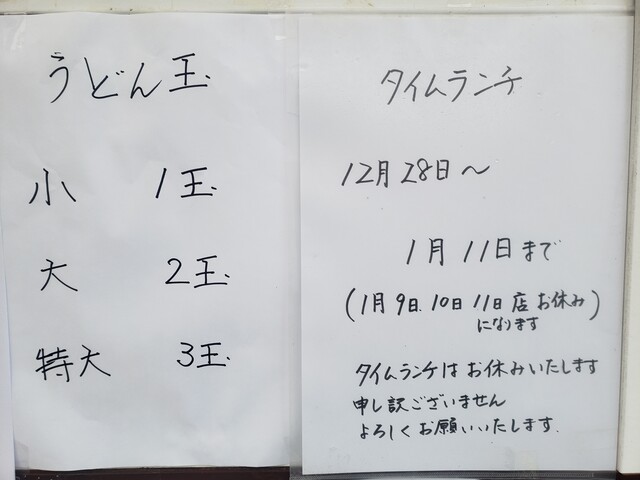 うどん玉
小 1玉
大 2玉
特大 3玉
タイムランチ
12月28日～
1月11日まで
(1月9日.10日11日店お休み)
になります
タイムランチはお休みいたします
申し訳ございません
よろしくお願いいたします.